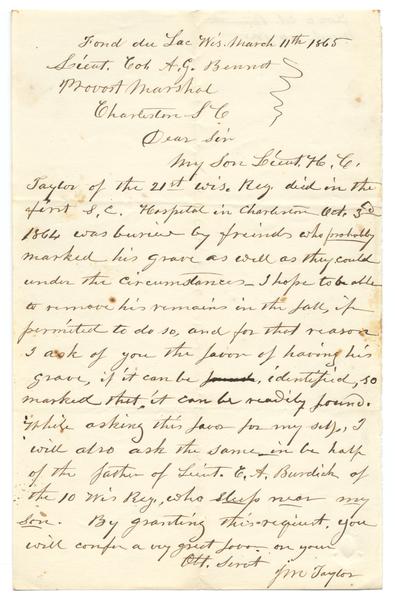 Fond du Lac Wis. March 11th 1865
Lieut. Col A. G. Bennet
Provost Marshal
Charleston S C
Dear Sir
My Son Lieut. H. C.
Taylor of the 21st Wis. Reg. died in the
first S. C. Hospital in Charleston Oct. 3d
1864 was buried by freinds who probably
marked his grave as well as they could
under the circumstances – I hope to be able
to remove his remains in the fall, if
permitted to do so, and for that reason
I ask of you the favor of having his
grave, if it can be found, identified, so
marked that it can be readily found.
While asking this favor for my self, I
will also ask the same in be half
of the father of Lieut. E. A. Burdick of
the 10 Wis Reg., who sleeps near my
son. By granting this request, you
will confer a very great favor on your
Obt. Servt
J M Taylor